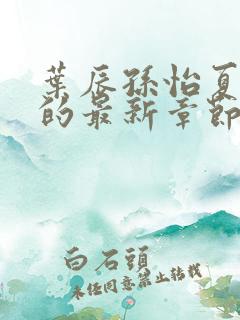 葉辰孫怡夏
的最新章節
白石頭
未经同意禁止转载